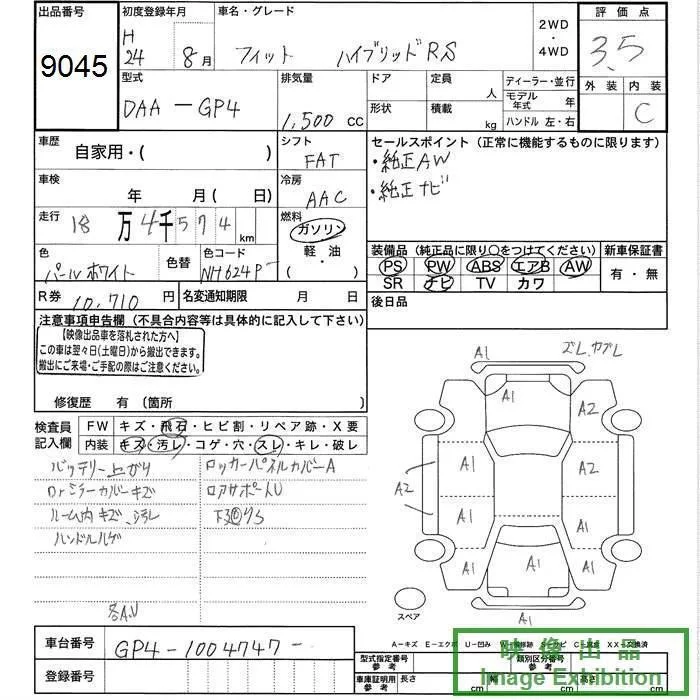 出品番号
9045
初度登録年月
H
24 8月
車名・グレード
フィット ハイブリッドRS
2WD
・
4WD
評価点
3.5
外装 内装
C
型式
DAA-GP4
排気量
1,500 CC
ドア
定員
人
形状
積載
kg
ディーラー・並行
モデル年式 年
ハンドル 左・右
車歴
自家用・( )
シフト
FAT
セールスポイント(正常に機能するものに限ります)
・純正AW
・純正ナビ
車検
年 月( 日)
冷房
AAC
走行
18万4千574km
燃料
ガソリン
軽・油
( )
色
パールホワイト
色替
色コード
NH624P
装備品(純正品に限り○をつけてください)
PS PW ABS エアB AW
SR ナビ TV カワ
新車保証書
有・無
R券 10,710円
名変通知期限 月 日
後日品
注意事項申告欄(不具合内容等は具体的に記入して下さい)
【映像出品車を落札された方へ】
この車は翌々日(土曜日)から搬出できます。
搬出にご来場・ご手配の際はご注意ください。
修復歴 有(箇所 )
検査員
記入欄
FW キズ・飛石・ヒビ割・リペア跡・X要
内装 キズ・汚レ・コゲ・穴・スレ・キレ・破レ
バッテリー上がり
Drミラーカバーキズ
ルーム内キズ、汚レ
ハンドルハゲ
各A.U
ロッカーパネルカバーA
ロアサポートU
A1
A1
A2
A1
A2
A2
A1
A1
A1
A1
A1
A1
A1
スペア
車台番号
GP4-1004747-
登録番号
A-キズ E-エクボ U-凹み
XX-交換済
型式指定番号
参考
類別区分番号
参考
車庫証明用
参考
長さ cm
幅 cm
高さ cm
映像出品
Image Exhibition